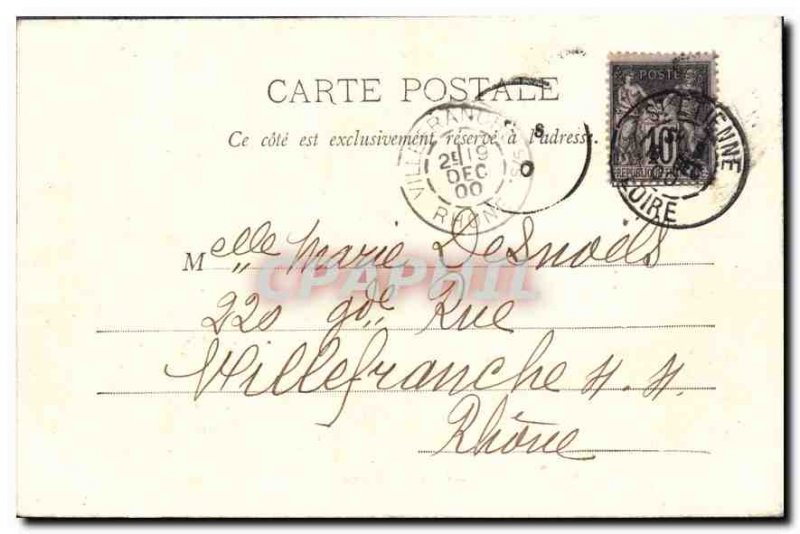 CARTE POSTALE
Ce côté est exclusivement réservé à l'adresse.
POSTE
10
REPUBLIQUE FRANCAISE
ETIENNE
LOIRE
VILLEFRANCHE S/S.
2E 19
DEC
00
RHONE
Melle Marie Desnoëls
220 gde Rue
Villefranche s. s.
Rhône
CPAPHIL